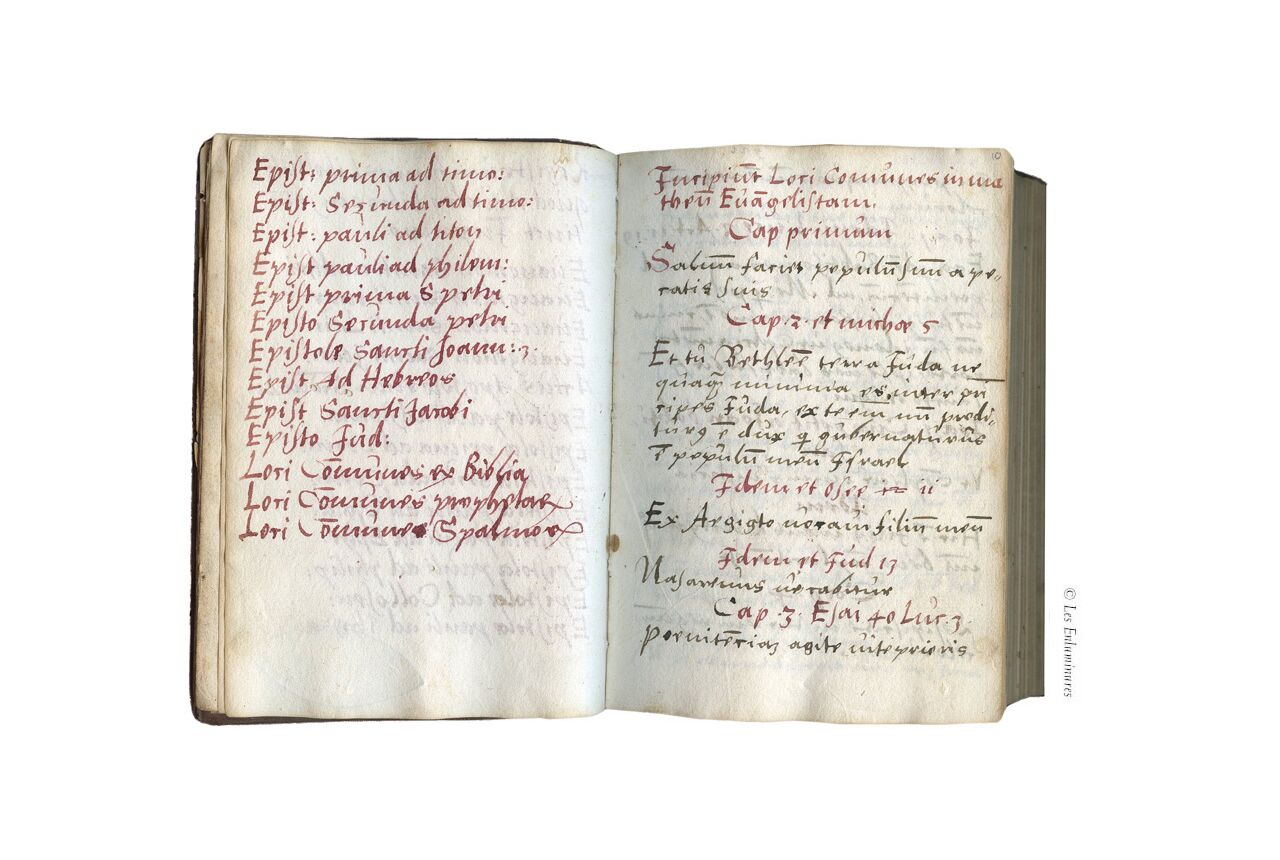 Epist: prima ad timo:
Epist: Secunda ad timo:
Epist: pauli ad titon
Epist pauli ad philem:
Epist prima S petri
Episto Secunda petri
Epistole Sancti Joann: 3.
Epist Ad Hebreos
Epist Sancti Jacobi
Episto Jud:
Loci Cōmunes ex Biblia
Loci Cōmunes prophetaꝝ
Loci Cōmunes Spalmoꝝ
10
Incipiūt Loci Comūnes in ma
theū Euāgelistam.
Cap primum
Saluū faciet populū suū a pe-
catis suis
Cap .2. et michæ 5
Et tu Bethleē terra Juda ne
quaqȝ minima es inter pri
cipes Juda, ex te eīm mī prodi-
turꝰ ē dux qi gubernaturus
ē populū meū Israel
Idem et Osee ii
Ex Aegipto uocaui filiū meū
Idem et Jud 13
Nasarenus uocabitur
Cap .3. Esai 40 Luc .3.
poenitēciaȝ agite uite prioris
© Les Enluminures